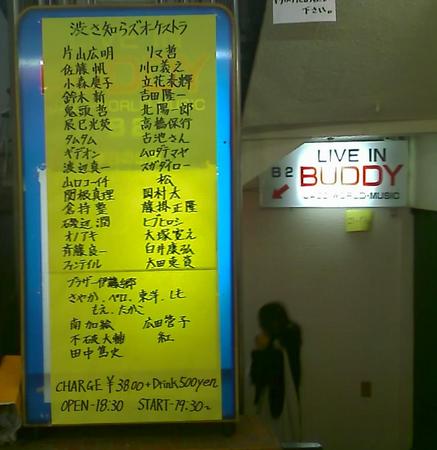 下さい。
渋さ知らズオーケストラ
片山広明 リマ哲
佐藤帆 川口義之
小森慶子 立花秀輝
鈴木新 吉田隆一
鬼頭哲 北陽一郎
辰巳光英 高橋保行
タムタム 古池さん
ギデオン ムロタマヤ
渡辺良一 スガダイロー
山口コーイチ 松
関根真理 岡村太
倉持整 藤掛正隆
磯辺潤 ヒゴヒロシ
オノアキ 大塚寛之
斉藤良一 臼井康弘
ファンテイル 太田惠資
ブラザー伊藤
さやか、ペロ、東洋、しも
もえ、たかこ
南加絵 広田菅子
不破大輔 紅
田中篤史
CHARGE ¥3800+Drink500yen
OPEN-18:30 START-19:30~
LIVE IN
B2 BUDDY
JAZZ・WORLD・MUSIC